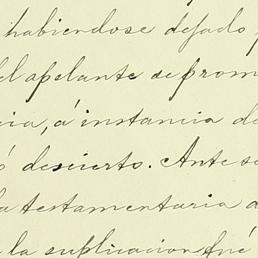 habiendose dejado
el apelante se prom
cia, á instancia de
ó desierto. Ante se
la testamentaria d
la suplicacion fué